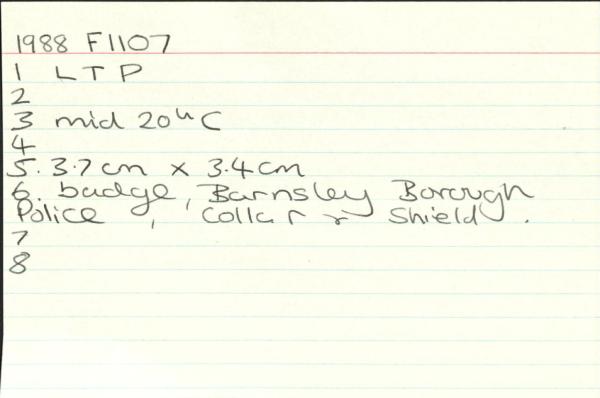 1988 F1107
1 LTP
2
3 mid 20th C
4
5. 3.7cm x 3.4cm
6. badge, Barnsley Borough
Police, Collar + Shield.
7
8